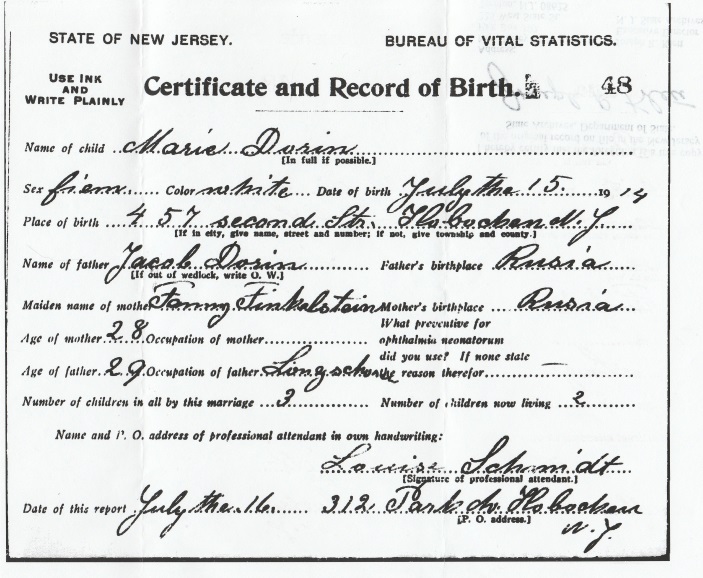 STATE OF NEW JERSEY. BUREAU OF VITAL STATISTICS.
USE INK AND WRITE PLAINLY
Certificate and Record of Birth. 48
Name of child Marie Dorin
[In full if possible.]
Sex fiem Color white Date of birth July the 15. 1914
Place of birth 457 second Str. Hobocken N. J
[If in city, give name, street and number; if not, give township and county.]
Name of father Jacob Dorin Father's birthplace Rusia
[If out of wedlock, write O. W.]
Maiden name of mother Fanny Finkelstein Mother's birthplace Rusia
What preventive for
Age of mother 28 Occupation of mother ophthalmia neonatorum
did you use? If none state
Age of father 29 Occupation of father the reason therefor —
Number of children in all by this marriage 3 Number of children now living 2
Name and P. O. address of professional attendant in own handwriting:
Louise Schmidt
[Signature of professional attendant.]
Date of this report July the 16. 312 Park Av. Hobocken
[P. O. address.]
N. J.